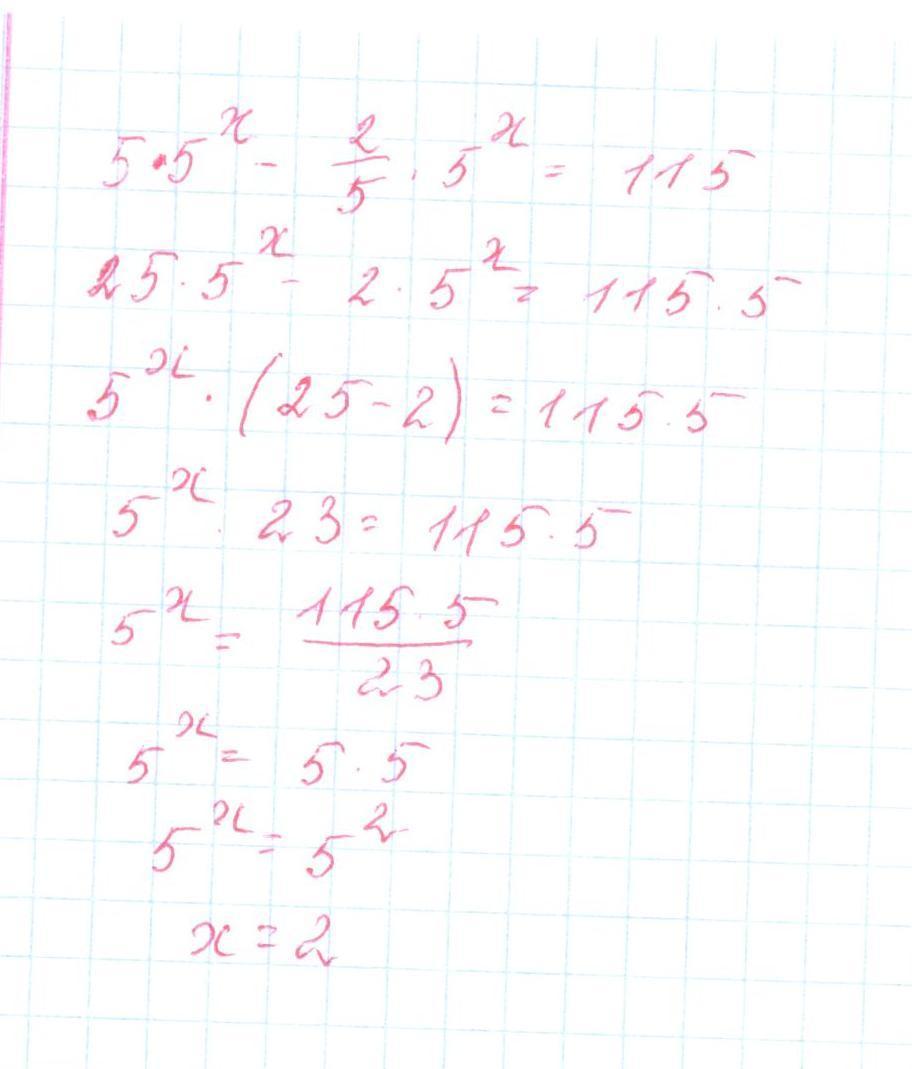 5·5^x - 2/5 · 5^x = 115
25·5^x - 2·5^x = 115·5
5^x · (25-2) = 115·5
5^x · 23 = 115·5
5^x = 115·5/23
5^x = 5·5
5^x = 5^2
x = 2